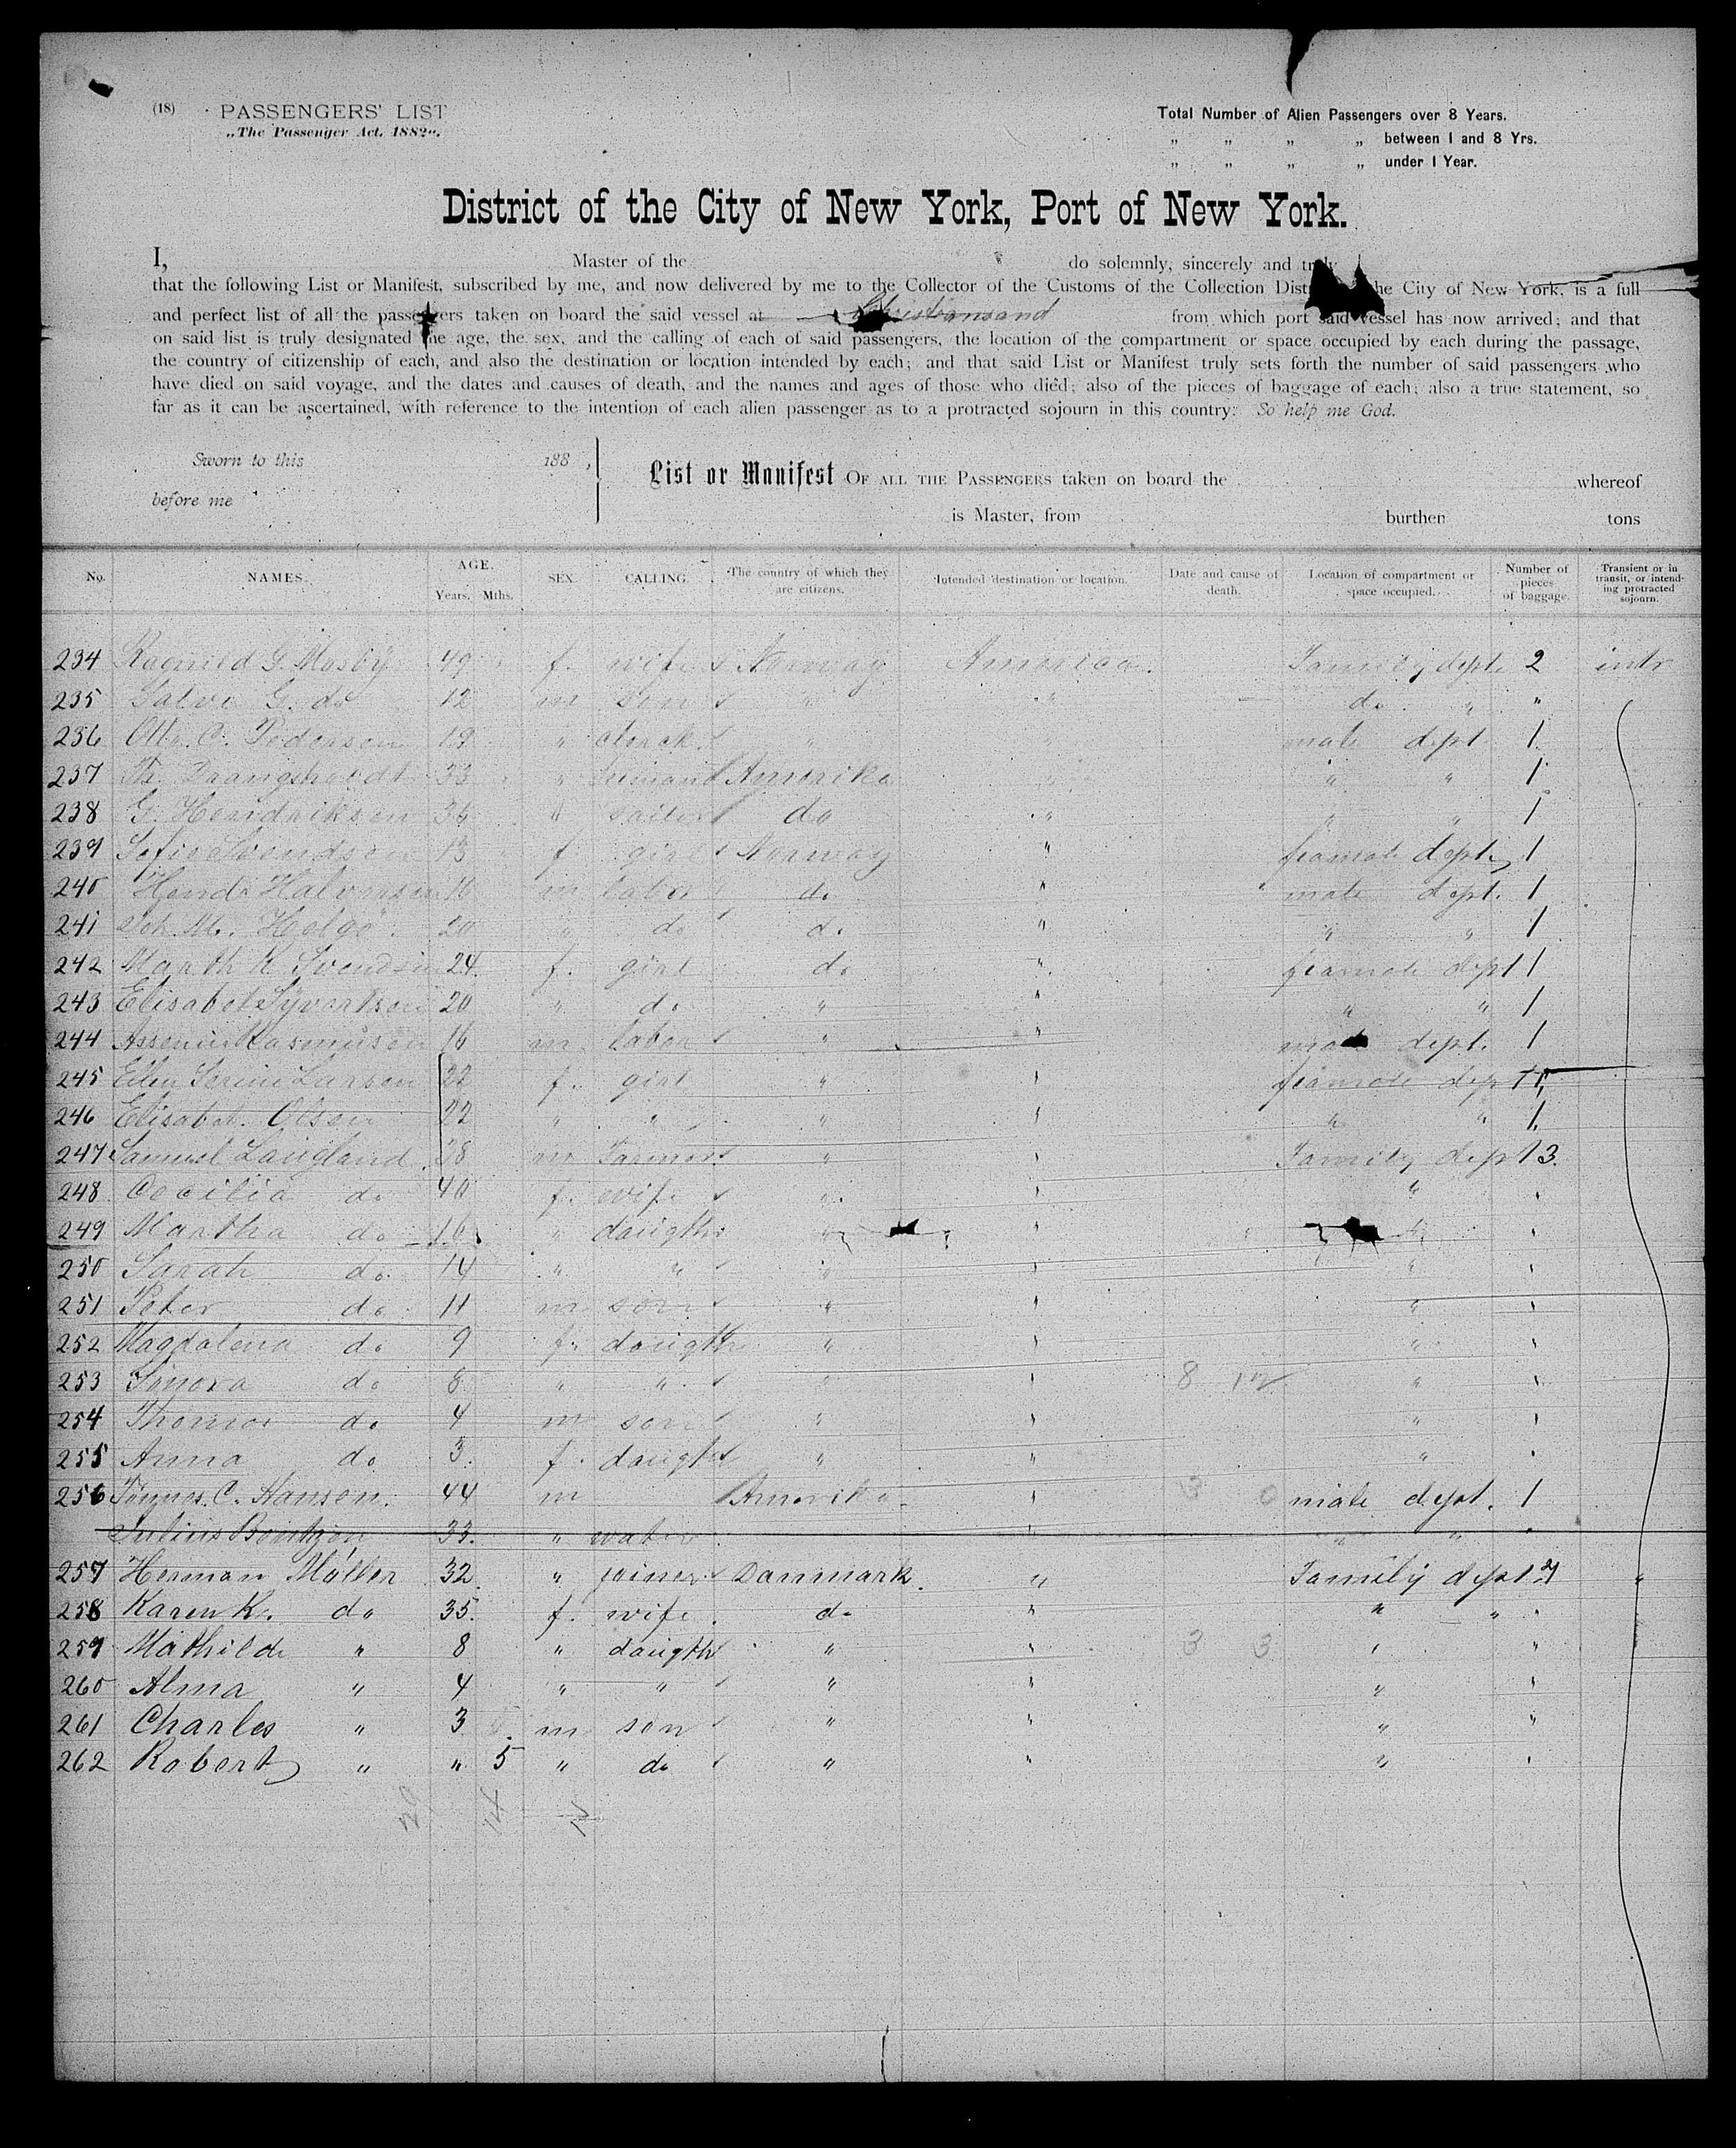 (18) PASSENGERS' LIST
„The Passenger Act. 1882".
Total Number of Alien Passengers over 8 Years.
„ „ „ „ between 1 and 8 Yrs.
„ „ „ „ under 1 Year.
District of the City of New York, Port of New York.
I, Master of the do solemnly, sincerely and truly
that the following List or Manifest, subscribed by me, and now delivered by me to the Collector of the Customs of the Collection Dist the City of New York, is a full
and perfect list of all the passengers taken on board the said vessel at Christiansand from which port said vessel has now arrived; and that
on said list is truly designated the age, the sex, and the calling of each of said passengers, the location of the compartment or space occupied by each during the passage,
the country of citizenship of each, and also the destination or location intended by each; and that said List or Manifest truly sets forth the number of said passengers who
have died on said voyage, and the dates and causes of death, and the names and ages of those who died; also of the pieces of baggage of each; also a true statement, so
far as it can be ascertained, with reference to the intention of each alien passenger as to a protracted sojourn in this country: So help me God.
Sworn to this 188 ,
before me
List or Manifest OF ALL THE PASSENGERS taken on board the whereof
is Master, from burthen tons
No. NAMES. AGE. Years. Mths. SEX. CALLING. The country of which they are citizens. Intended destination or location. Date and cause of death. Location of compartment or space occupied. Number of pieces of baggage. Transient or in transit, or intending protracted sojourn.
234 Ragnild G. Mosby 49 f. wife Norway America. Family dept. 2 intr
235 Salve G. do 12 m son " " do " "
236 Otto C. Pedersen 19 " clerck " male dept 1.
237 Th. Drangshordt 33 " Amerika " " 1
238 G. Hendriksen 36 " sailor do " " " 1
239 Sofie Svendsen 13 f girl Norway " feamale dept. 1
240 Hendr Halvorsen 16 m labor do " male dept. 1
241 Joh. M. Helgö 20 " do do " " " 1
242 Marth K Svendsen 24. f. girl do " feamale dept 1
243 Elisabet Syvertsen 20 " do " " " " 1
244 Rasmusen 16 m labor " " male dept. 1
245 Ellen Serine Larsen 22 f. girl " " feamale dept 1.
246 Elisabet. Olsen 22 " " " " " " 1.
247 Samuel Laugland. 38 m Farmer " " Family dept 3.
248 Cecilia do 40 f. wife " " " "
249 Martha do 16. " daugthr " " " "
250 Sarah do. 14 " " " " " "
251 Peter do. 11 m son " " " "
252 Magdalena do 9 f. daugthr " " " "
253 Sinora do 8 " " " " 8 12 " "
254 Thomas do 4 m son " " " "
255 Anna do 3. f. daugthr " " " "
256 Tönnes. C. Hansen. 44 m Amerika " 3 0 male dept. 1
Julius 33. " " " " "
257 Herman Möller 32. " joiner Danmark. " Family dept 4 "
258 Karen K. do 35. f. wife do " " " "
259 Mathilde " 8 " daugthr " " 3 3 " "
260 Alma " 4 " " " " " "
261 Charles " 3 m son " " " "
262 Robert " " 5 " do " " " "